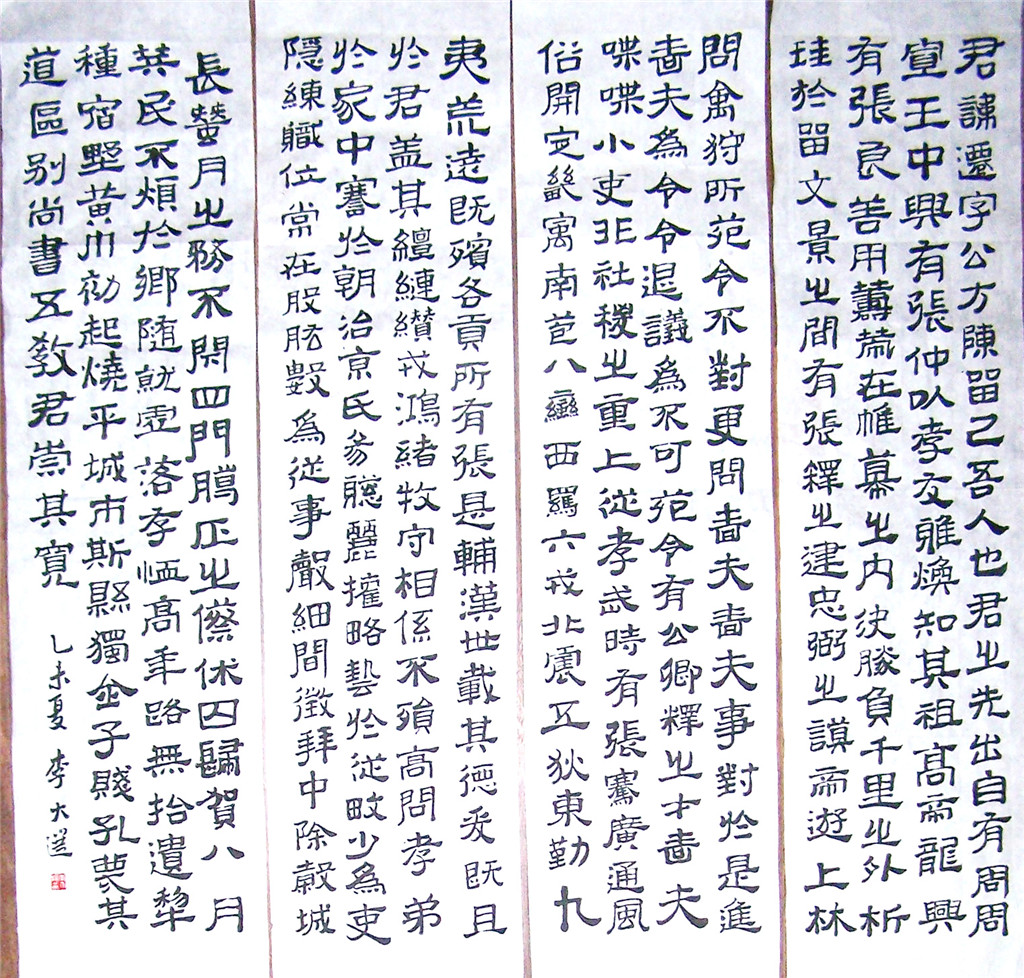 君諱遷字公方陳留己吾人也君之先出自有周周
宣王中興有張仲以孝友雅煥知其祖高帝龍興
有張良善用籌策在帷幕之內決勝負千里之外析
珪於留文景之間有張釋之建忠弼之謨帝遊上林
問禽狩所苑令不對更問嗇夫嗇夫事對於是進
嗇夫為令令退議為不可苑令有公卿釋之才嗇夫
喋喋小吏非社稷之重上從孝武時有張騫廣通風
俗開定畿寓南苞八蠻西羈六戎北震五狄東勤九
夷荒遠既殯各貢所有張是輔漢世載其德爰既且
於君蓋其繵縺纘戎鴻緒牧守相係不殞高問孝弟
於家中謇於朝治京氏易聰麗權略藝於從畋少為吏
隱練職位常在股肱數為從事聲細間徵拜中除穀城
長蠶月之務不閉四門臈正之傺休囚歸賀八月
筭民不煩於鄉隨就虛落存恤高年路無拾遺犁
種宿野黃巾初起燒平城市斯縣獨全子賤孔蔑其
道區別尚書五教君崇其寬
乙未夏 李大